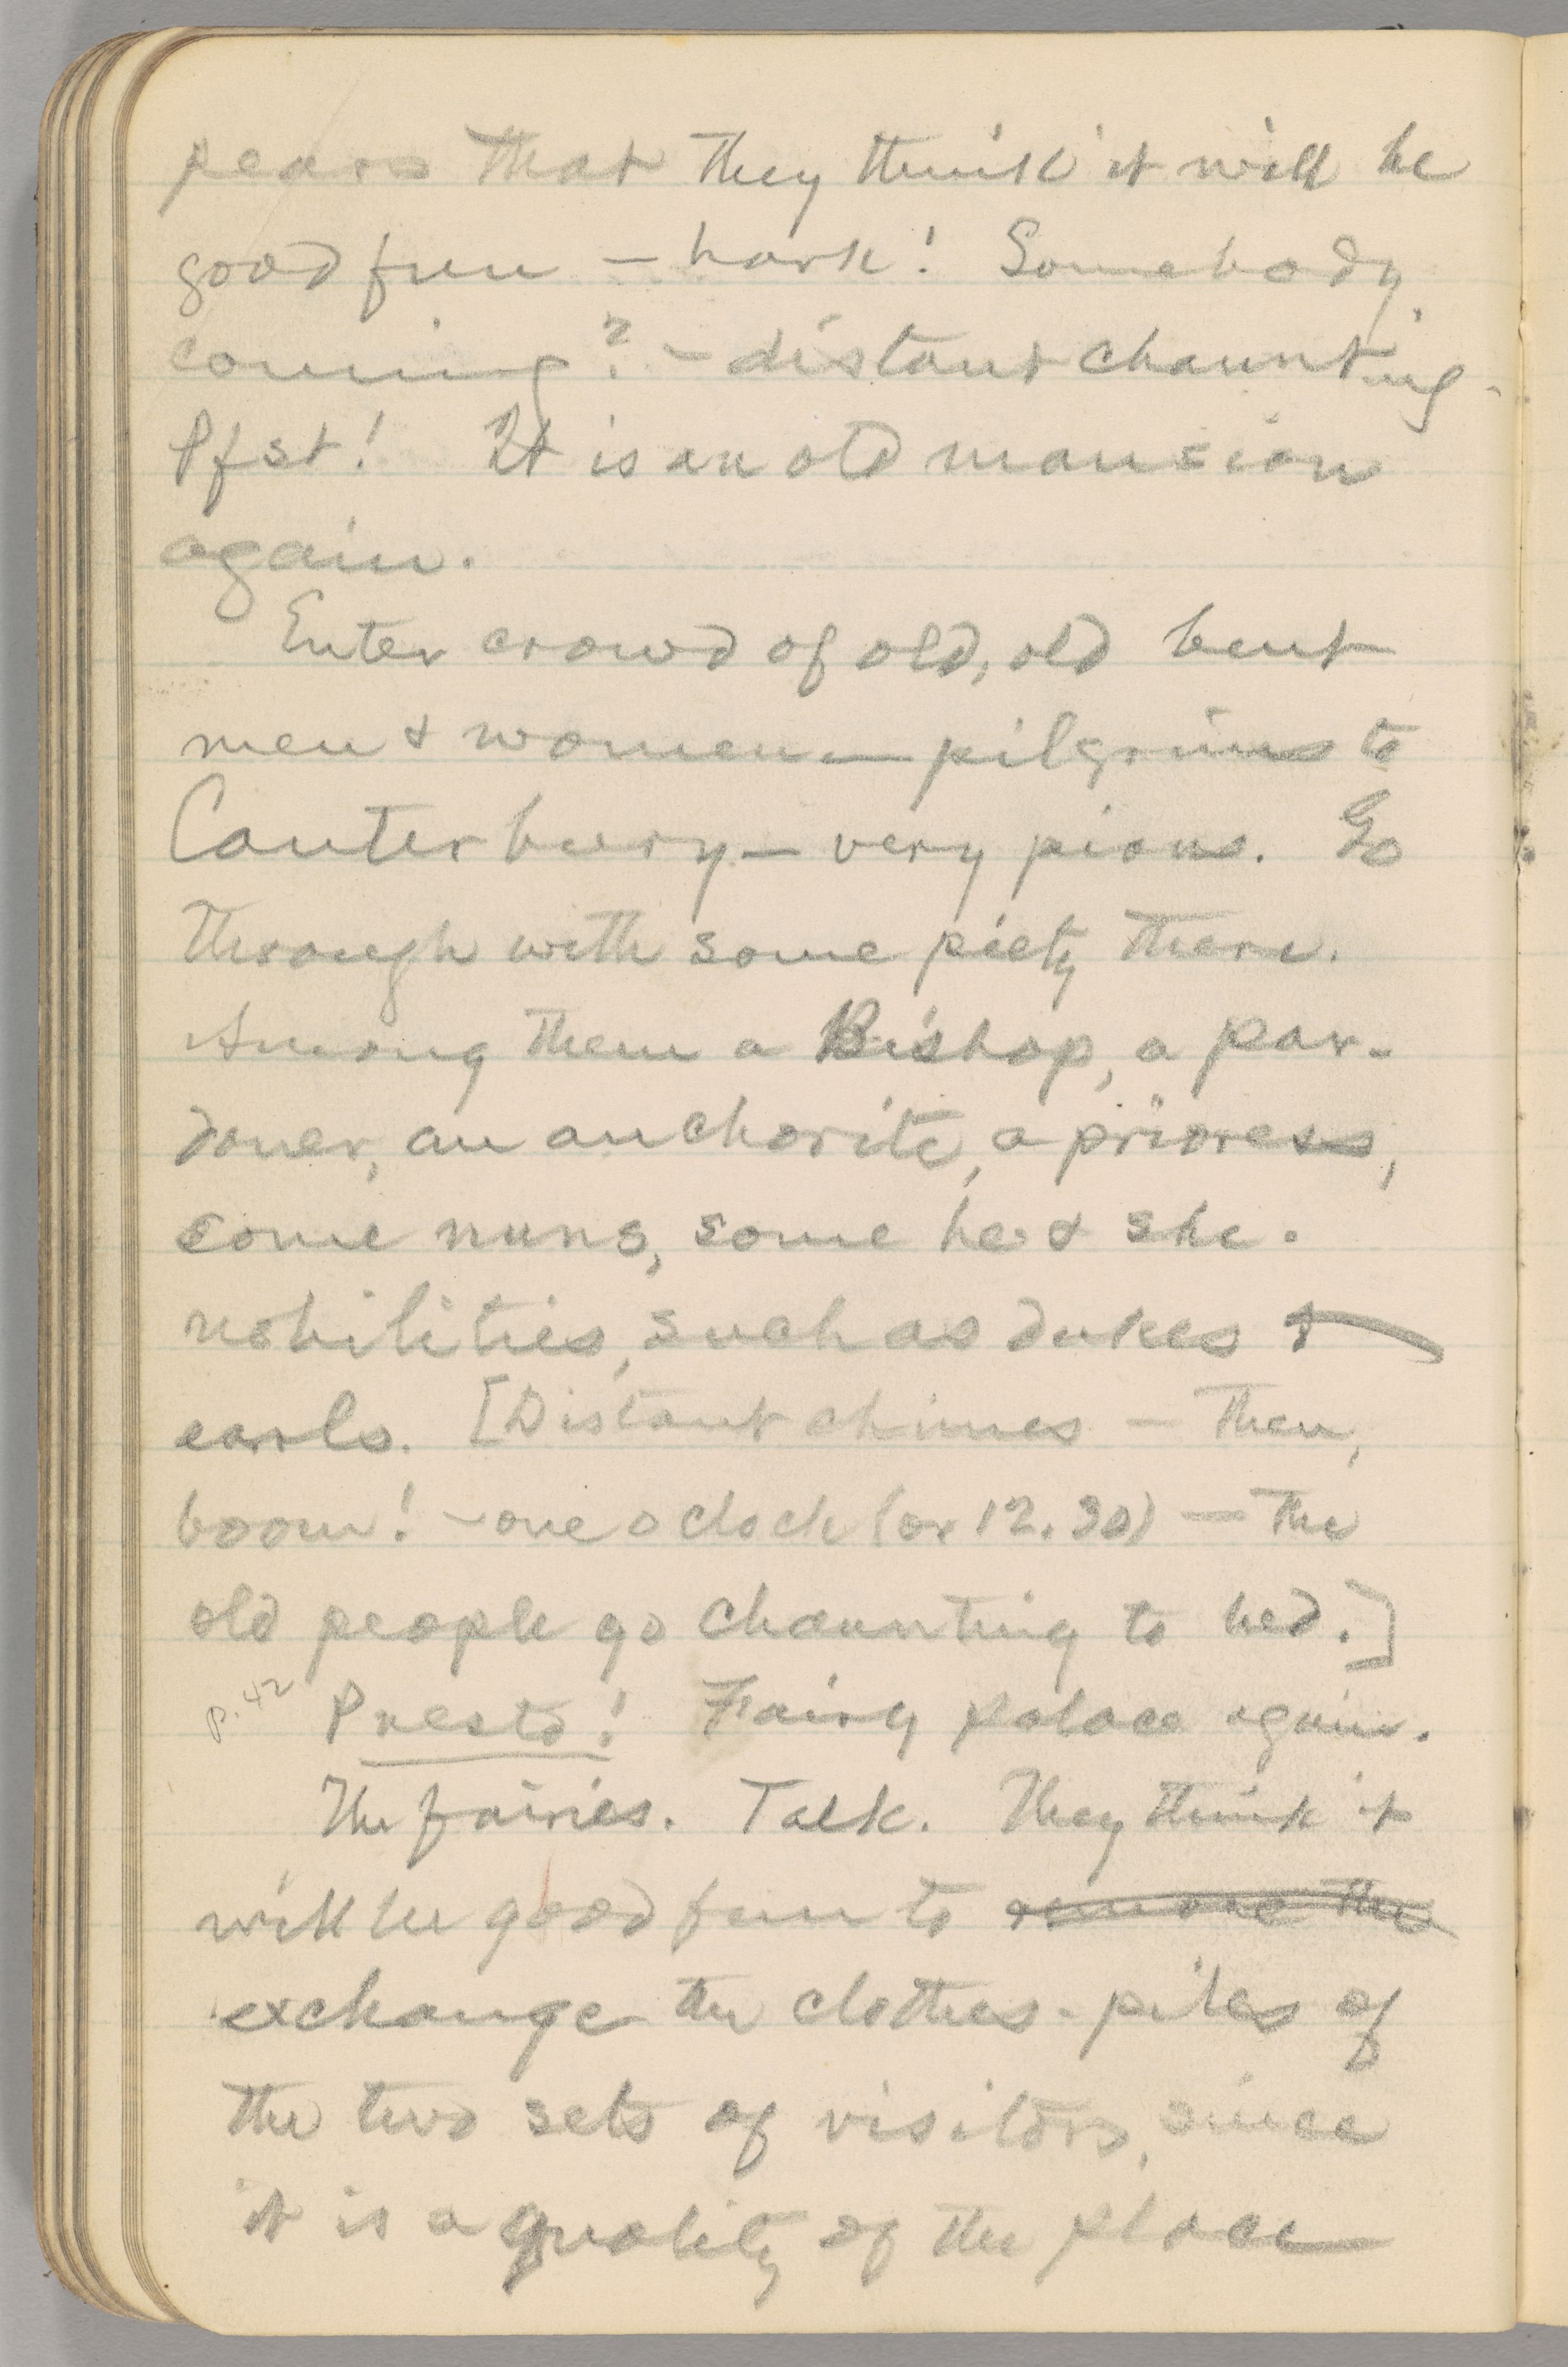 pears that they think it will be
good fun — hark! Somebody
coming? — distant chaunting.
Pfst! It is an old mansion
again.
Enter crowd of old, old bent
men & women — pilgrims to
Canterbury — very pious. Go
through with some piety there.
Among them a Bishop, a par-
doner, an anchorite, a prioress,
some nuns, some he & she-
nobilities, such as dukes &
earls. [Distant chimes — then,
boom! — one o clock (or 12.30) — the
old people go chaunting to bed.]
p. 42 Presto! Fairy palace again.
The fairies. Talk. They think it
will be good fun to remove the
exchange the clothes-piles of
the two sets of visitors, since
it is a quality of the place